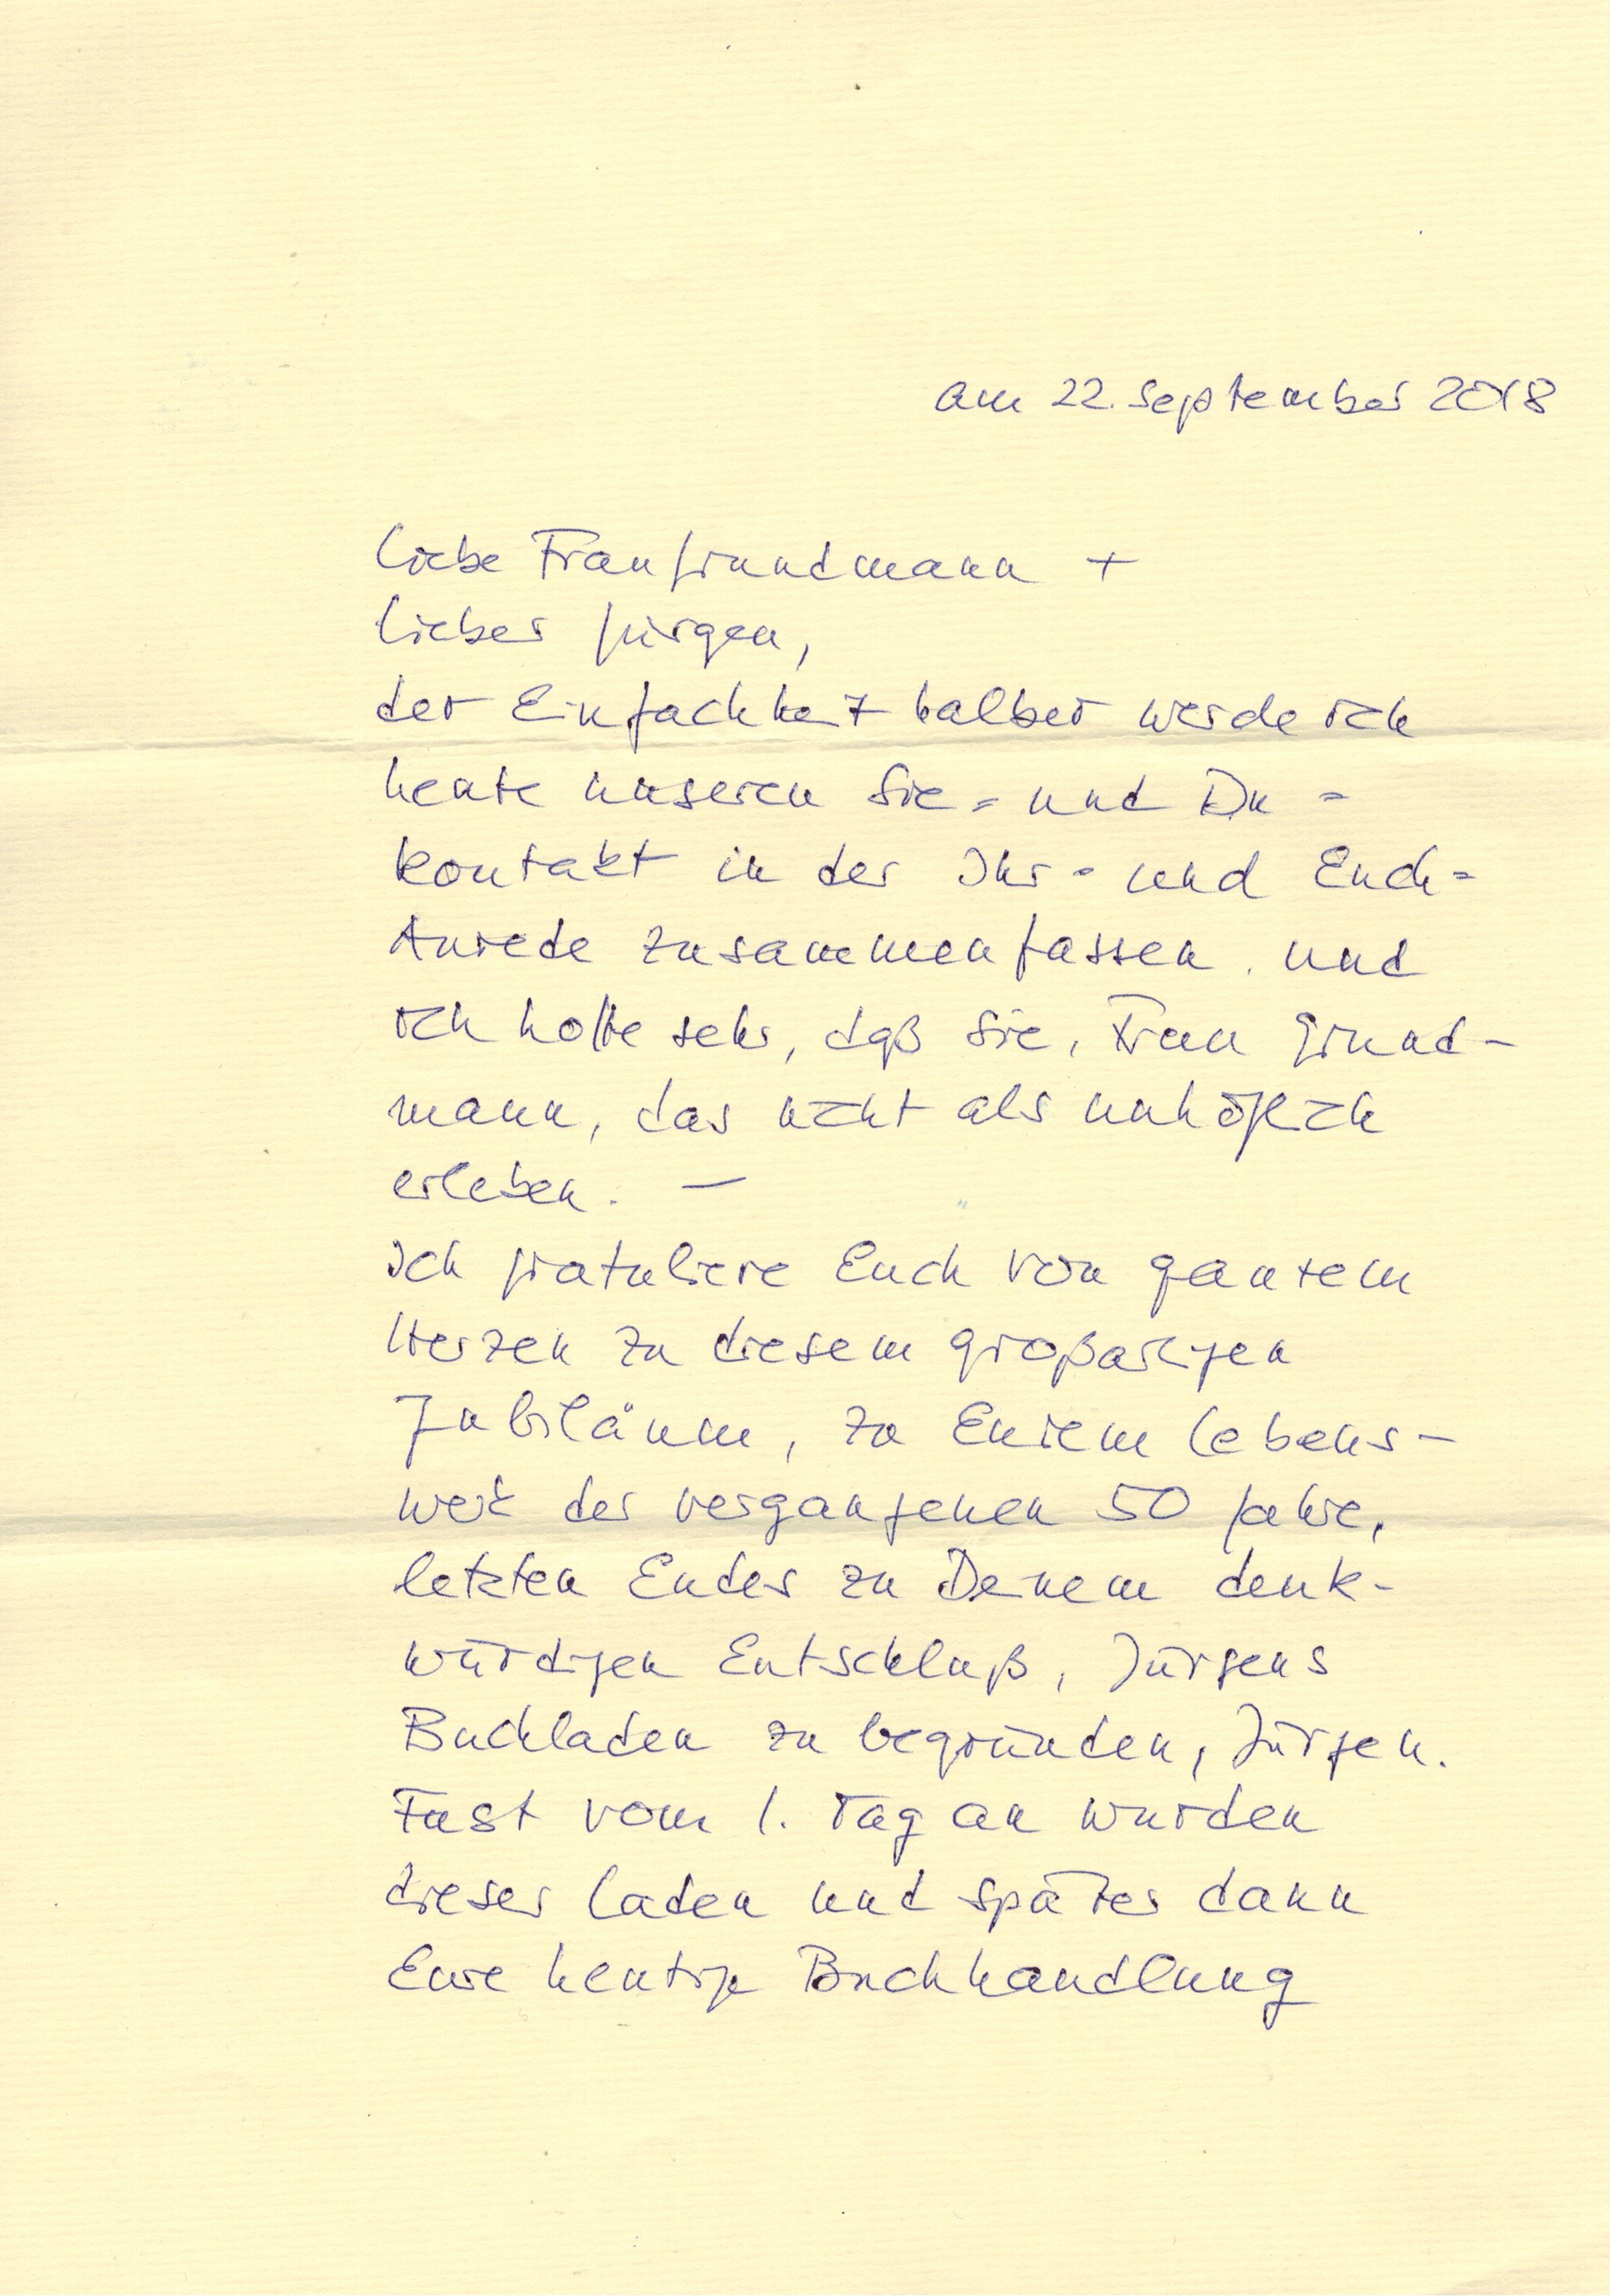 am 22. September 2018
Liebe Frau Grundmann +
lieber Jürgen,
der Einfachheit halber werde ich
heute unseren Sie- und Du-
Kontakt in der Ihr- und Euch-
Anrede zusammenfassen. und
ich hoffe sehr, daß Sie, Frau Grund-
mann, das nicht als unhöflich
erleben. —
Ich gratuliere Euch von ganzem
Herzen zu diesem großartigen
Jubiläum, zu Eurem Lebens-
werk der vergangenen 50 Jahre,
letzten Endes zu Deinem denk-
würdigen Entschluß, Jürgens
Buchladen zu begründen, Jürgen.
Fast vom 1. Tag an wurden
dieser Laden und später dann
Eure heutige Buchhandlung